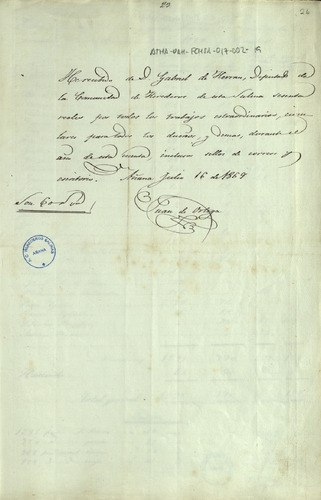 20
26
ATHA-DAH-FCHSA-017-002-19
He recibido de D. Gabriel de Herran, Diputado de
la Comunidad de Herederos de esta Salina sesenta
reales por todos los trabajos estraordinarios, circu-
lares para todos los dueños, y demas, durante el
año de esta cuenta, inclusos sellos de correos y
escritorio. Añana Julio 16 de 1864
Son 60 r.s v.n
Juan de Ortega